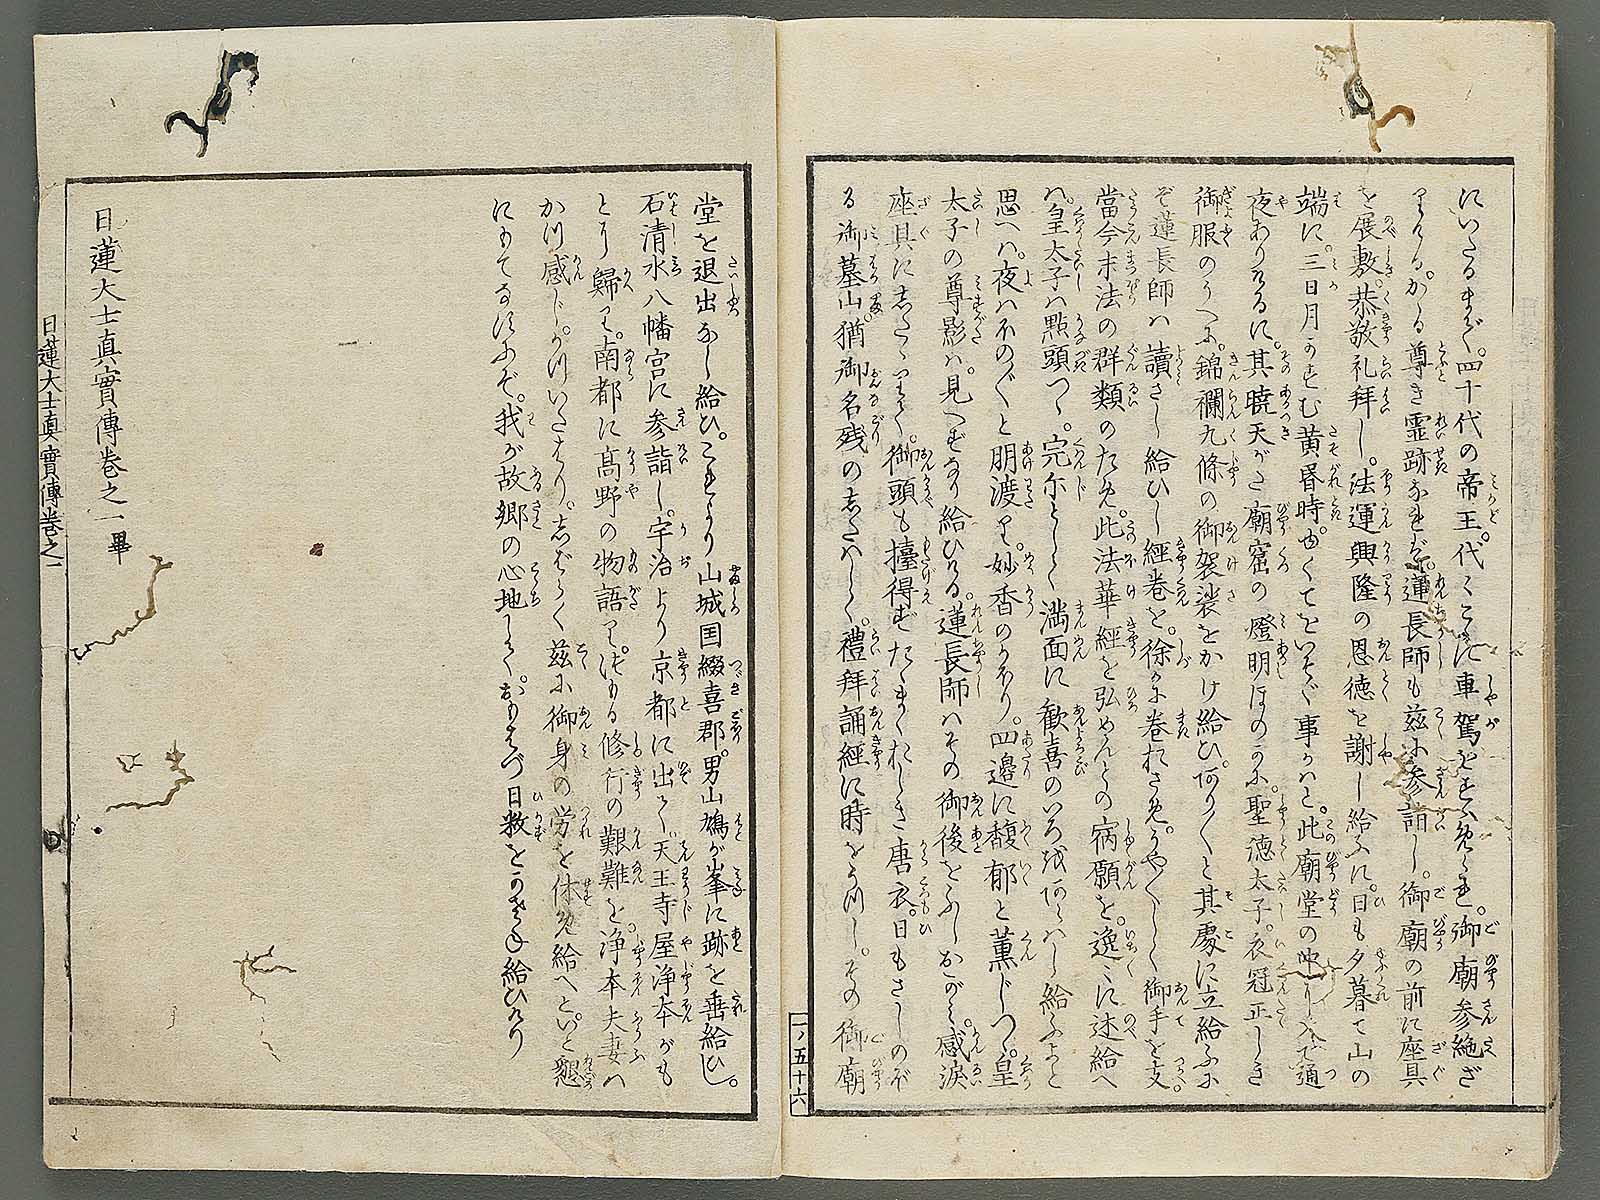 にいたるまで。四十代の帝王。代々こゝに車駕をとゞめられ。御廟参絶ざ
りける。かゝる尊き霊跡なれば。蓮長師も茲に参詣し。御廟の前に座具
を展敷。恭敬礼拝し。法運興隆の恩徳を謝し給ふに。日も夕暮て山の
端に。三日月かすむ黄昏時。やくてをいそぐ事かはと。此廟堂の中り入て通
夜ありけるに。其暁天がた廟窟の燈明ほのかに。聖徳太子。衣冠正しき
御服のうへに。錦襴九條の御袈裟をかけ給ひ。あり〳〵と其處に立給ふに
ぞ蓮長師は讀さし給ひし經巻を。徐に巻おさめ。うや〳〵しく御手を支
當今末法の群類のため。此法華經を弘めんとの宿願を。逸々に述給へ
ば。皇太子は點頭つゝ。完尓として満面に歓喜のいろをあらはし給ふよと
思へば。夜はほの〴〵と明渡り。妙香のかほり。四邊に馥郁と薫じつゝ。皇
太子の尊影は。見へずなり給ひける。蓮長師はその御後をふしおがみ。感涙
座具にしたゝりて。御頭も擡得ずたゞまくおしき唐衣。日もさしのぼ
る御墓山。猶御名残のしたはしく。禮拜誦經に時をうつし。その御廟
一ノ五十六
堂を退出なし給ひ。これより山城国綴喜郡。男山鳩が峯に跡を垂給ひし。
石清水八幡宮に参詣し。宇治より京都に出て。天王寺屋浄本がも
とに歸り。南都に高野の物語り。つもる修行の艱難を。浄本夫妻は
かつ感じ。かついたはり。しばらく茲に御身の労を休め給へと。いと懇
にもてなすにぞ。我が故郷の心地して。おもはず日数をかさね給ひけり
日蓮大士真實傳巻之一畢
日蓮大士真實傳巻之一